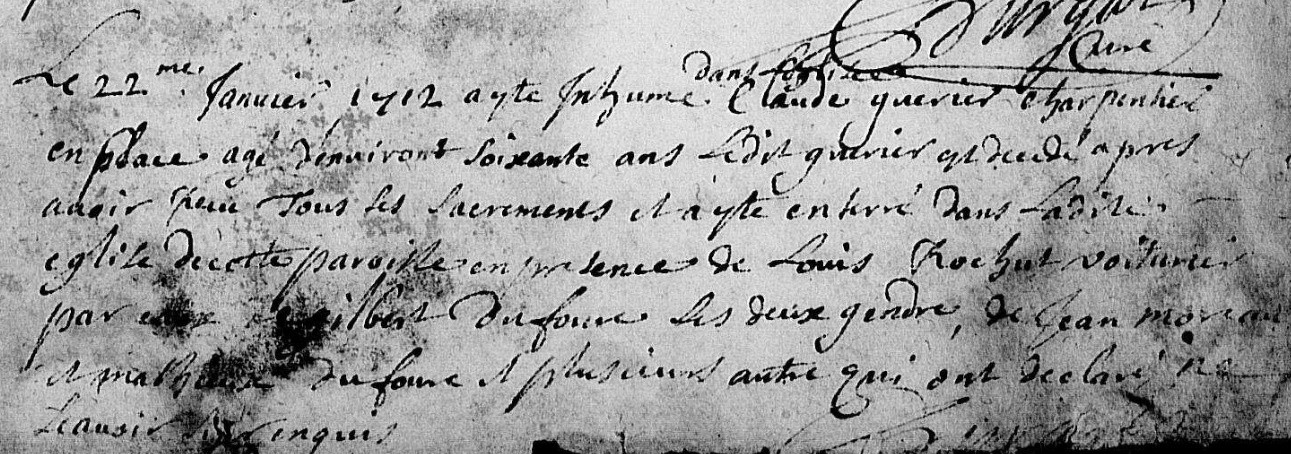 Curé
dans leglise
Le 22me Janvier 1712 a yte Inhumé Claude guerier charpentier
en place agé denviront soixante ans Ledit guerier yt decedé apres
avoir Receu Tous les sacrements et a yte enterré dans Ladite
eglise de cette paroisse en presence de Louis Rochut voiturier
par eaux gilbert Dufoure les deux gendre, de Jean moreau
et mathieux dufoure et plusieurs autre qui ont declaré ne
scavoir enquis